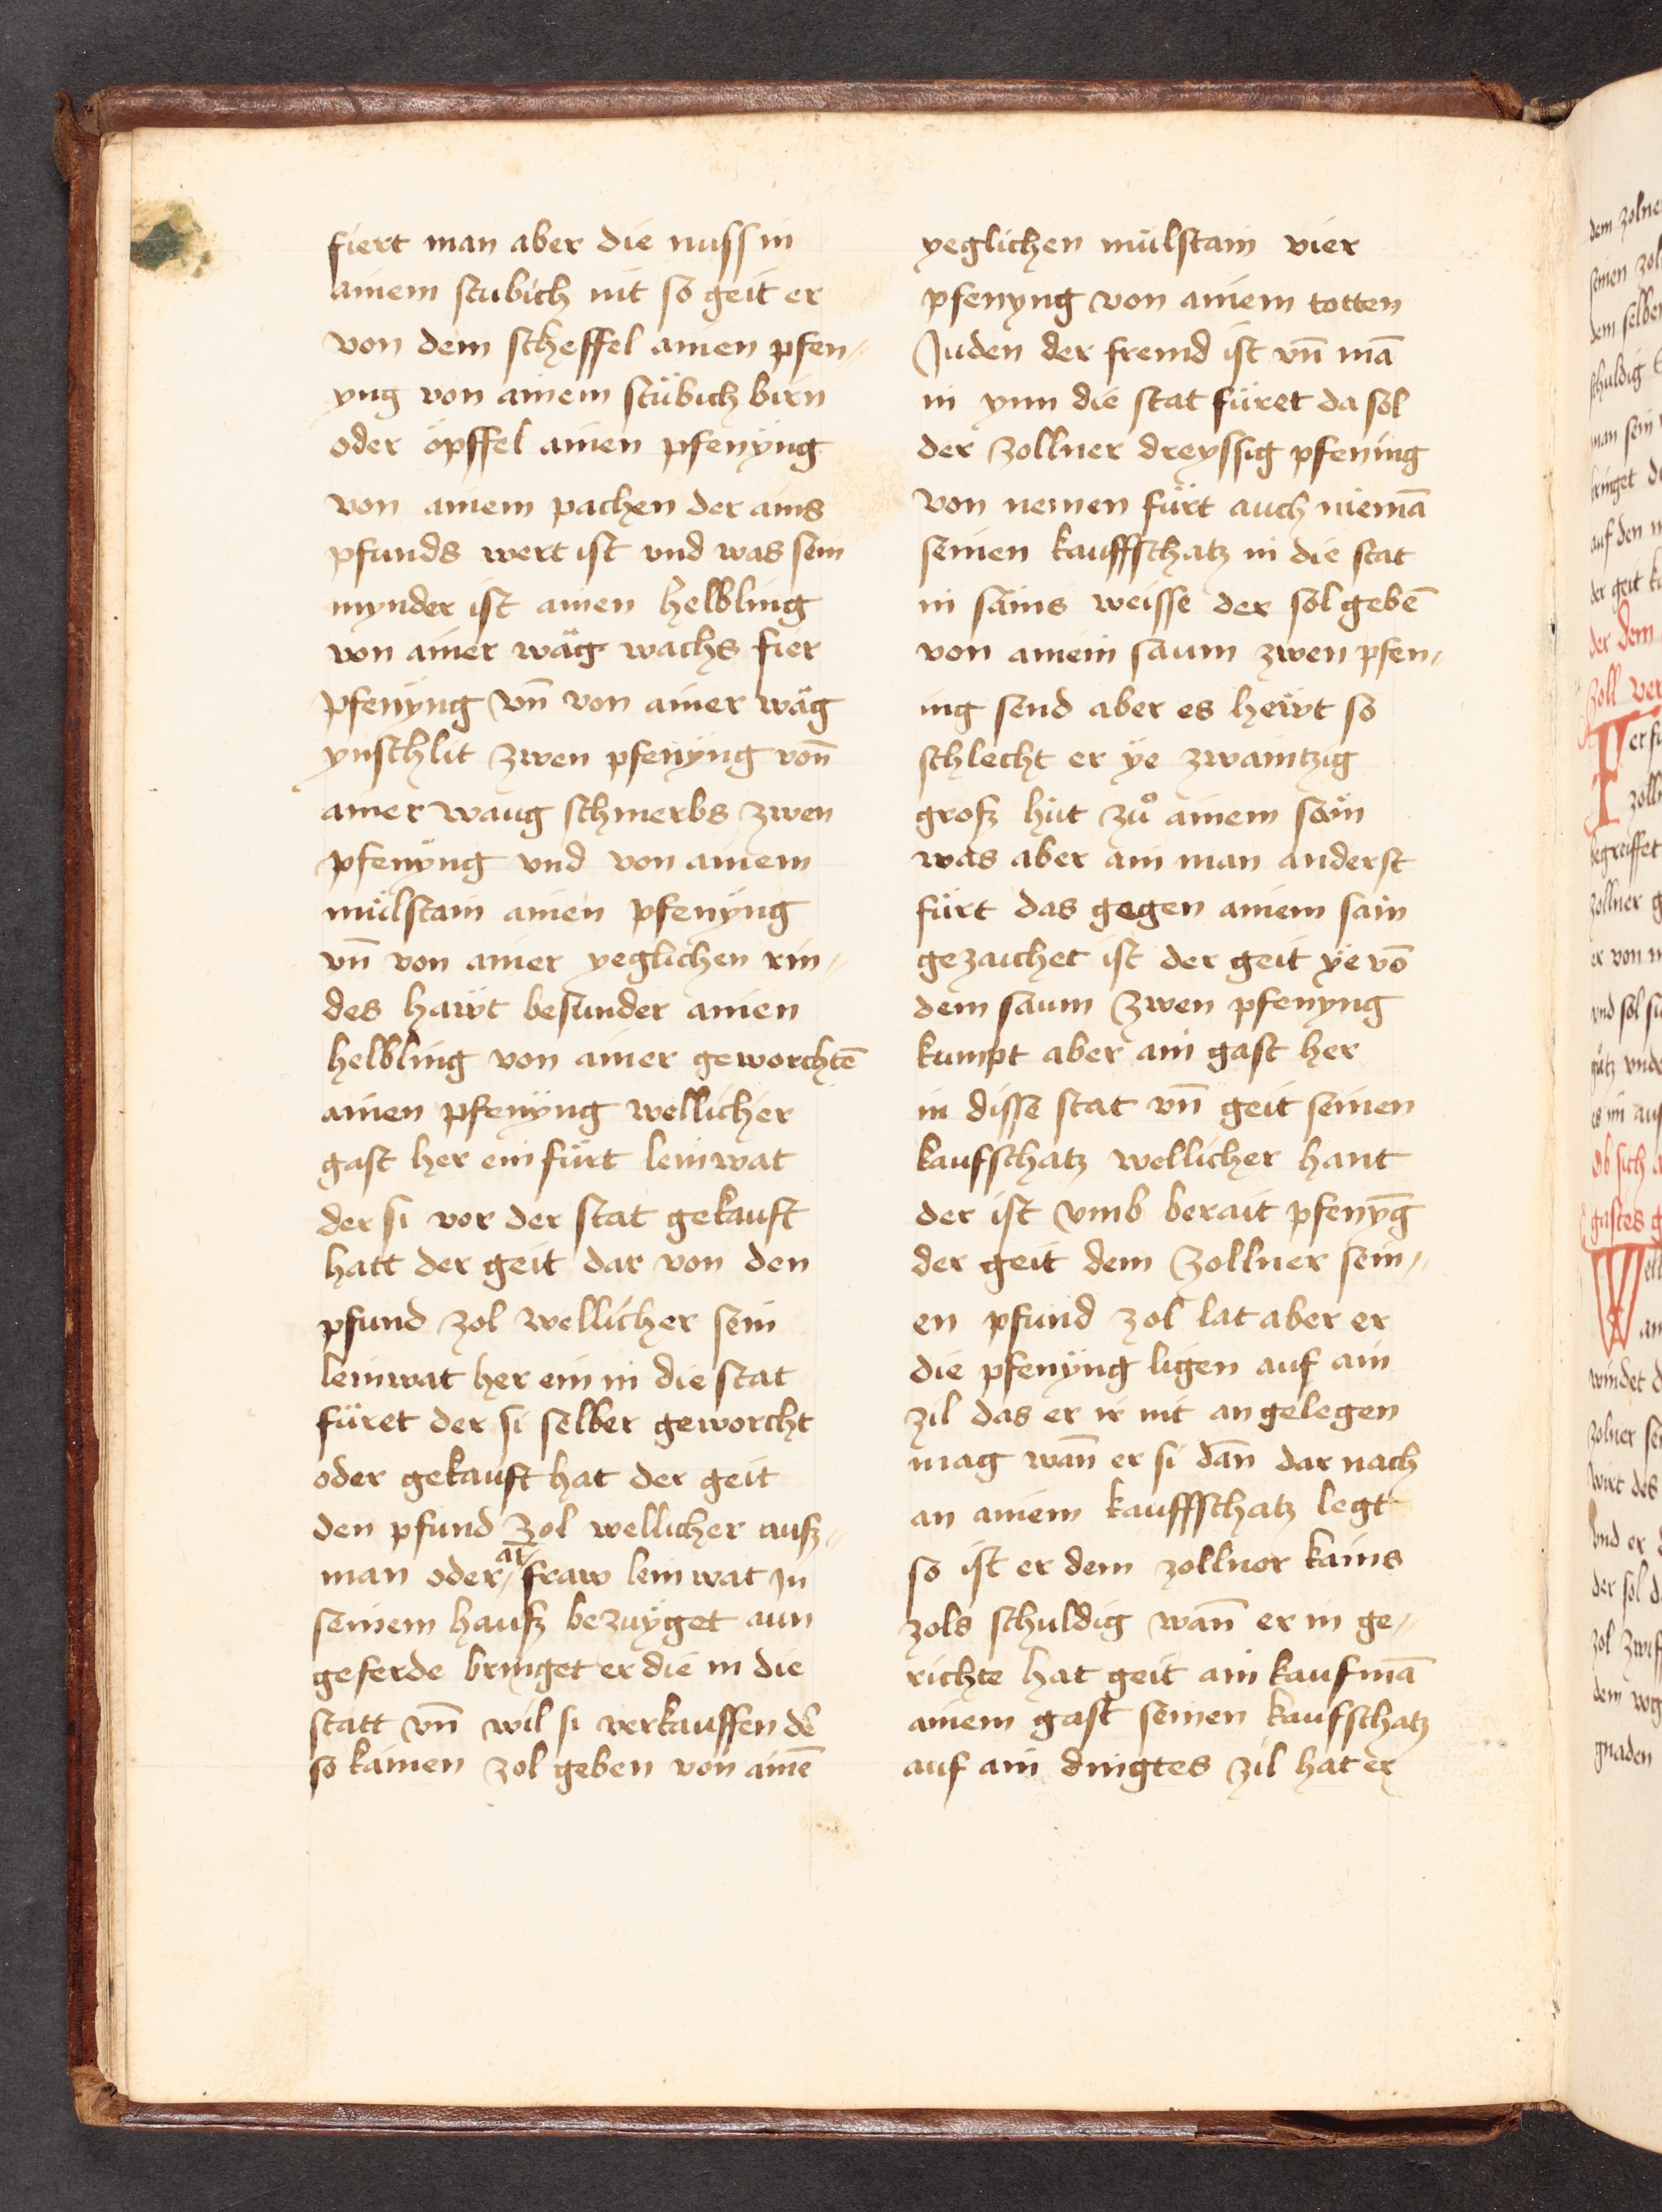 fiert man aber die nuss in
ainem stubich nit so geit er
von dem scheffel ainen pfen⸗
yng von ainem stübich birn
oder öpffel ainen pfenÿng
von ainem pachen der ains
pfunds wert ist vnd was sein
mynder ist ainen helbling
von ainer wäg wachs fier
pfenÿng vn̄ von ainer wäg
ynschlit zwen pfenÿng von̄
ainer waug schmerbs zwen
pfenÿng vnd von ainem
mülstain ainen pfenÿng
vn̄ von ainer yeglichen rin⸗
des hawt besunder ainen
helbling von ainer geworchtē
ainen pfenÿng wellicher
gast her ein fürt leinwat
der si vor der stat gekauft
hatt der geit dar von den
pfund zol wellicher sein
leinwat her ein in die stat
füret der si selber geworcht
oder gekauft hat der geit
den pfund zol wellicher auſz⸗
man oder fraw leinwat in
seinem hauſz bezuÿget aun
geferde bringet er die in die
statt vn̄ wil si verkauffen d̄e
so kainen zol geben von ainē
yeglichen mülstain vier
pfenyng von ainem totten
Juden der fremd ist vn̄ mā
in ynn die stat füret da sol
der zollner dreyssig pfening
von nemen fürt auch niemā
seinen kauffschatz in die stat
in säms weisse der sol gebē
von ainem saum zwen pfen⸗
ing send aber es hewt so
schlecht er ÿe zwaintzig
groſz hüt zů ainem säm
was aber ain man anderst
fürt das gegen ainem sain
gezaichet ist der geit ÿe vō
dem saum zwen pfenyng
kumpt aber ain gast her
in disse stat vn̄ geit seinen
kaufschatz wellicher hant
der ist vmb berait pfenyn̄g
der geit dem zollner sein⸗
en pfund zol lat aber er
die pfenÿng ligen auf ain
zil das er ir nit an gelegen
mag wan̄ er si dan̄ dar nach
an ainem kauffschatz legt
so ist er dem zollner kains
zols schuldig wan̄ er in ge⸗
richte hat geit ain kaufmā
ainem gast seinen kaufschatz
auf ain dingtes zil hat er
dem zolner
seinen zol
dem selben
schuldig
man sein
bringet
auf den
der geit
der dem
zoll ver
zoll
begreiffet
zollner
er von
vnd sol
es im auf
Ob sich
gastes
windet
zolner
wirt des
vnd er
der sol
zol
dem vog
gnaden